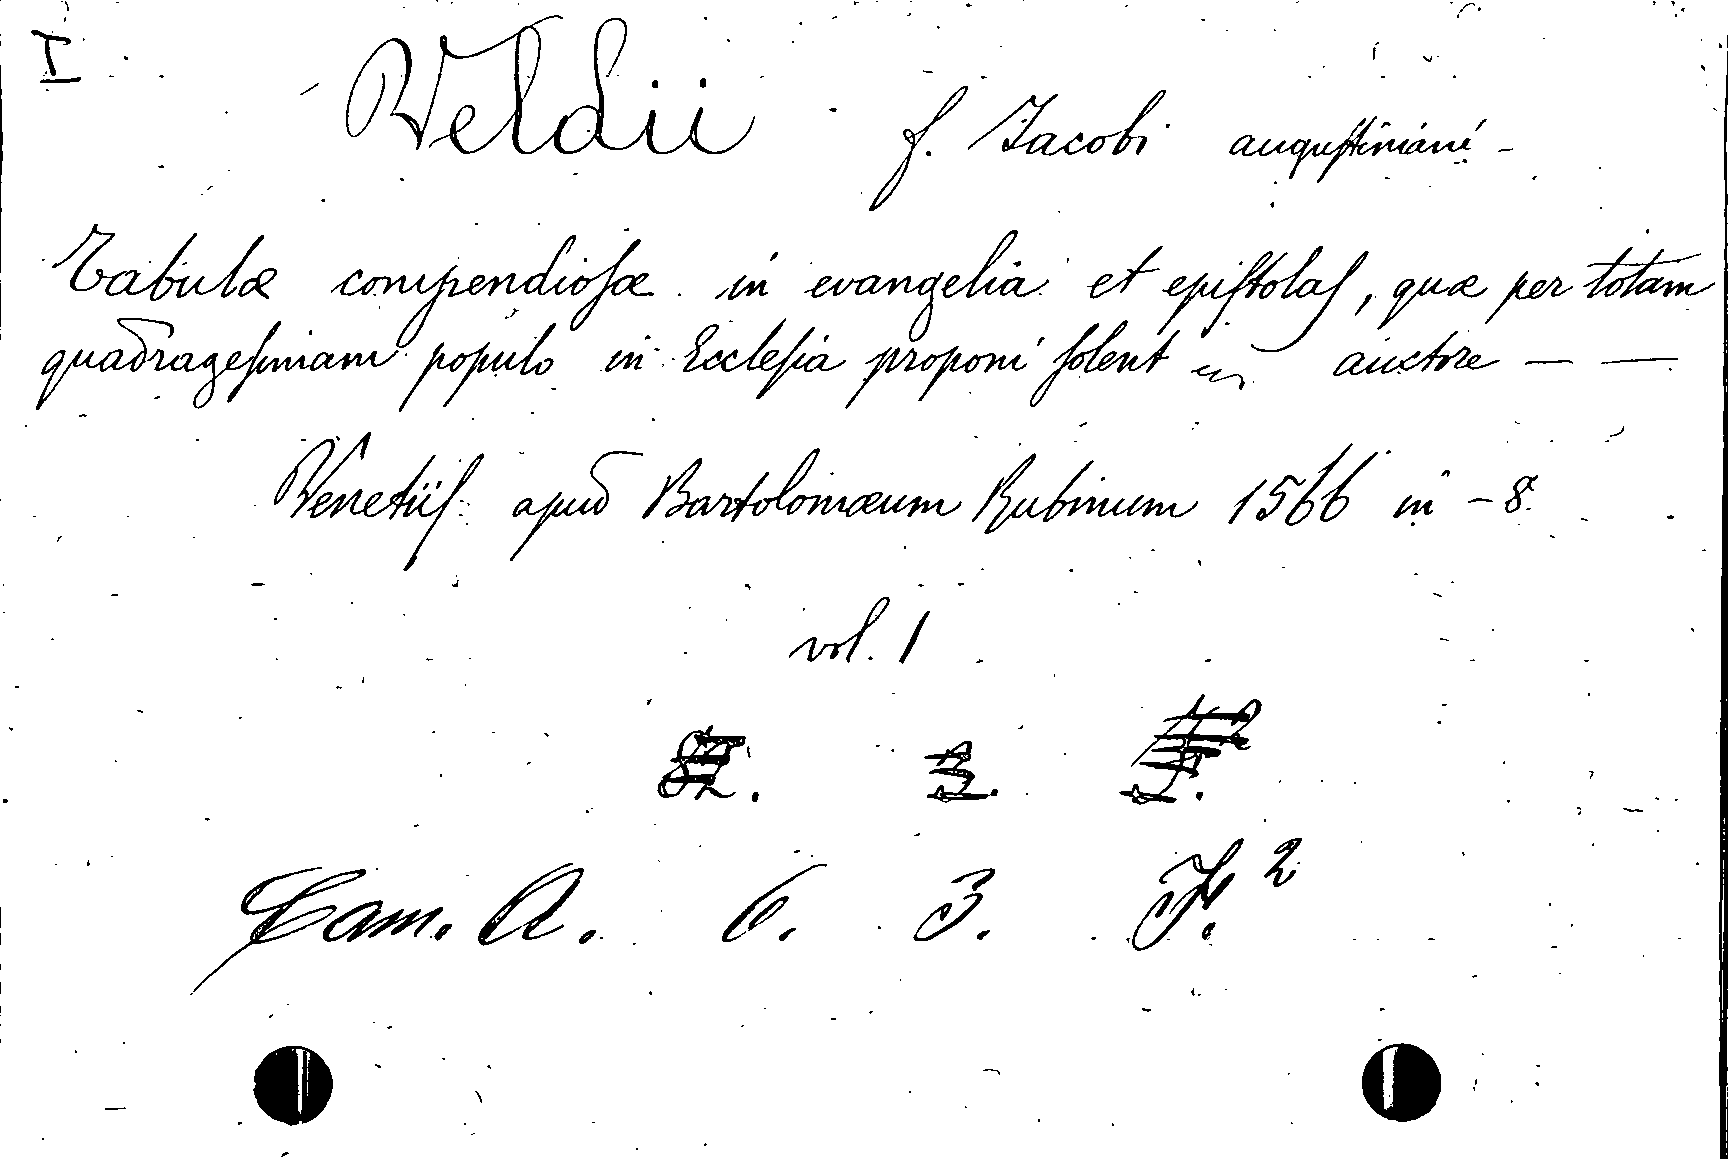 I
Veldii f. Jacobi auguſtiniani -
Tabulæ compendioſæ in evangelia et epiſtolaſ, quæ per totam
quadrageſimam populo in Eccleſia proponi ſolent auctore — —
Venetiiſ apud Bartolomæum Rubinum 1566 in - 8.
vol. 1
Cam. A. 6. 3. 2